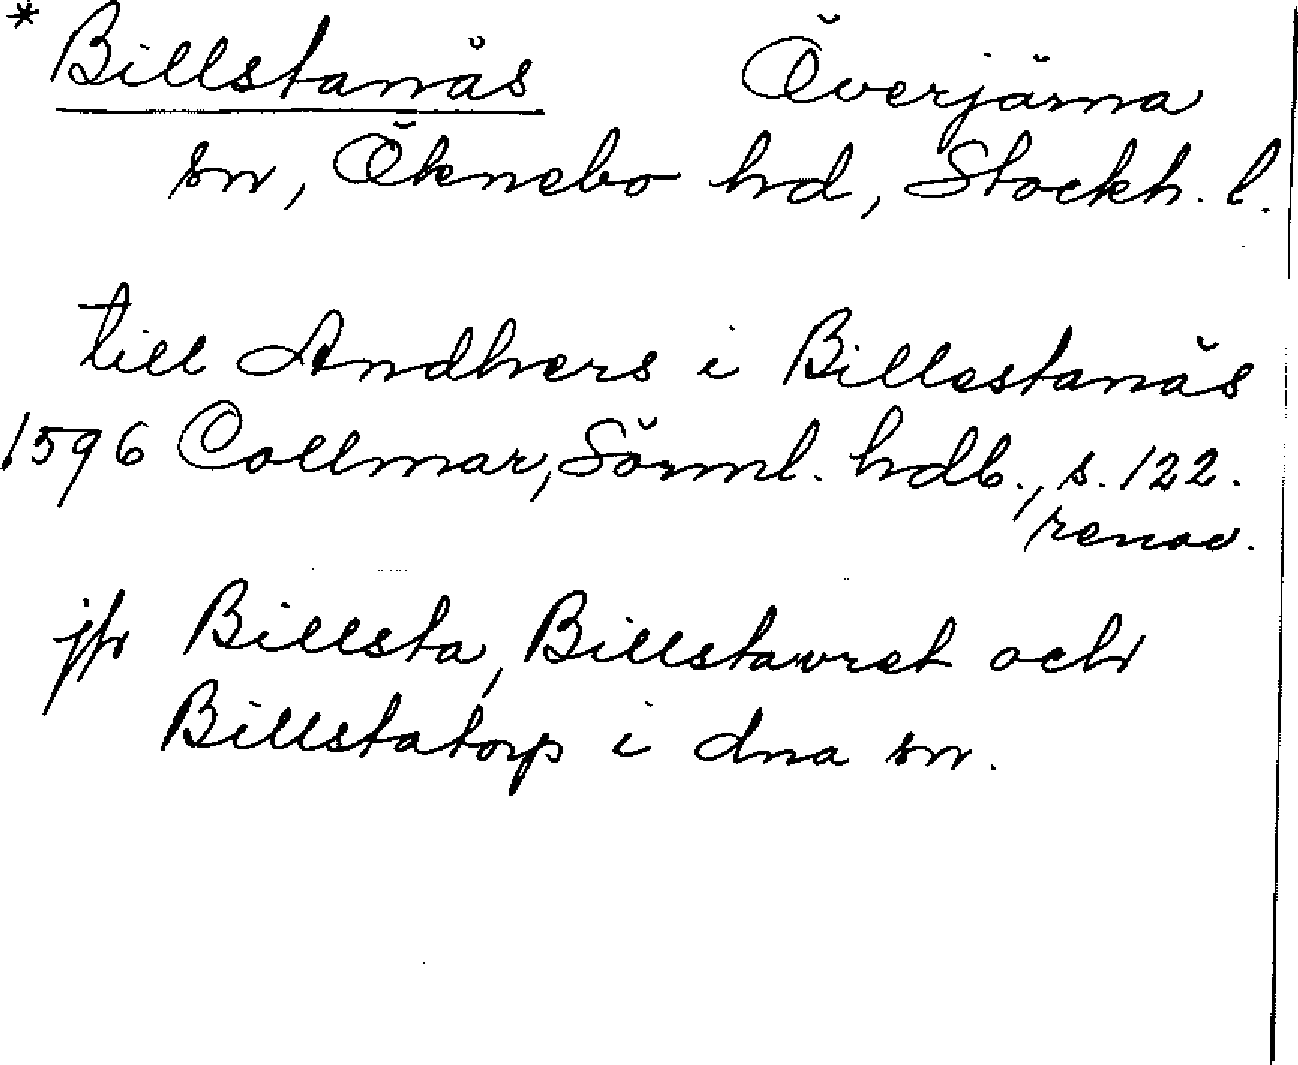 * Billstanäs Överjärna
sn, Öknebo hd, Stockh. l.
till Andhers i Billestanäs
1596 Collmar, Sörml. hdb., s. 122.
renov.
jfr Billsta, Billstavret och
Billstatorp i dna sn.